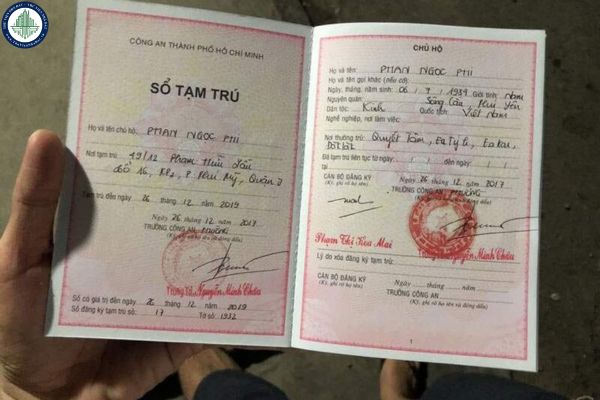 CÔNG AN THÀNH PHỐ HỒ CHÍ MINH
SỔ TẠM TRÚ
Họ và tên chủ hộ: PHAN NGỌC PHI
Nơi tạm trú: 49/12 Phạm Hữu Lầu
tổ 16, KP2, P. Phú Mỹ, Quận 7
Tạm trú đến ngày 26 tháng 12 năm 2019
Ngày 26 tháng 12 năm 2017
TRƯỞNG CÔNG AN PHƯỜNG
(Ký, ghi rõ họ tên và đóng dấu)
Nguyễn Minh Châu
Sổ có giá trị đến ngày 26 tháng 12 năm 2019
Sổ đăng ký tạm trú số: 17 Tờ số: 1932
CHỦ HỘ
Họ và tên: PHAN NGỌC PHI
Họ và tên gọi khác (nếu có):
Ngày, tháng, năm sinh: 06 / 9 / 1989 Giới tính: Nam
Nguyên quán: Sông Cầu, Phú Yên
Dân tộc: Kinh Quốc tịch: Việt Nam
Nghề nghiệp, nơi làm việc:
Nơi thường trú: Quyết Tâm, Ea Tý, Ea Kar,
Đắk Lắk
Đã tạm trú liên tục từ ngày / / đến ngày / /
tại
Ngày 26 tháng 12 năm 2017
CÁN BỘ ĐĂNG KÝ TRƯỞNG CÔNG AN PHƯỜNG
(Ký, ghi rõ họ tên) (Ký, ghi rõ họ tên và đóng dấu)
Phạm Thị Hoa Mai
Nguyễn Minh Châu
Lý do xóa đăng ký tạm trú:
Ngày tháng năm
CÁN BỘ ĐĂNG KÝ TRƯỞNG CÔNG AN
(Ký, ghi rõ họ tên) (Ký, ghi rõ họ tên và đóng dấu)
1